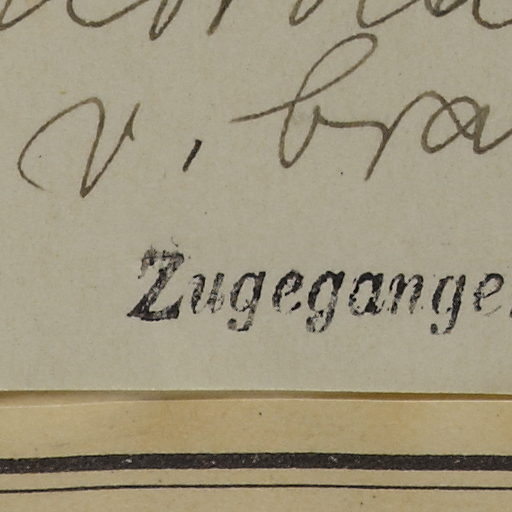 v. bra
Zugegange